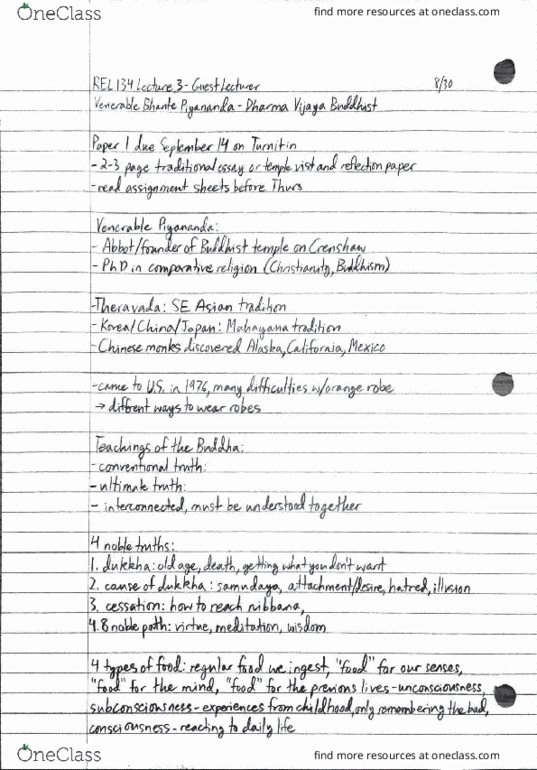 OneClass
find more resources at oneclass.com
REL 134 Lecture 3 - Guest Lecturer 8/30
Venerable Bhante Piyananda - Dharma Vijaya Buddhist
Paper 1 due September 14 on Turnitin
- 2-3 page traditional essay or temple vist and reflection paper
- read assignment sheets before Thurs
Venerable Piyananda:
- Abbot/founder of Buddhist temple on Crenshaw
- PhD in comparative religion (Christianity, Buddhism)
- Theravada: SE Asian tradition
- Korea/China/Japan: Mahayana tradition
- Chinese monks discovered Alaska, California, Mexico
- came to U.S. in 1976, many difficulties w/orange robe
→ diffrent ways to wear robes
Teachings of the Buddha:
- conventional truth:
- ultimate truth:
- interconnected, must be understood together
4 noble truths:
1. dukkha: old age, death, getting what you don't want
2. cause of dukkha: samudaya, attachment/desire, hatred, illusion
3. cessation: how to reach nibbana,
4. 8 noble path: virtue, meditation, wisdom
4 types of food: regular food we ingest, "food" for our senses,
"food" for the mind, "food" for the previous lives - unconsciousness,
subconsciousness - experiences from childhood, only remembering the bad,
consciousness - reacting to daily life
OneClass
find more resources at oneclass.com